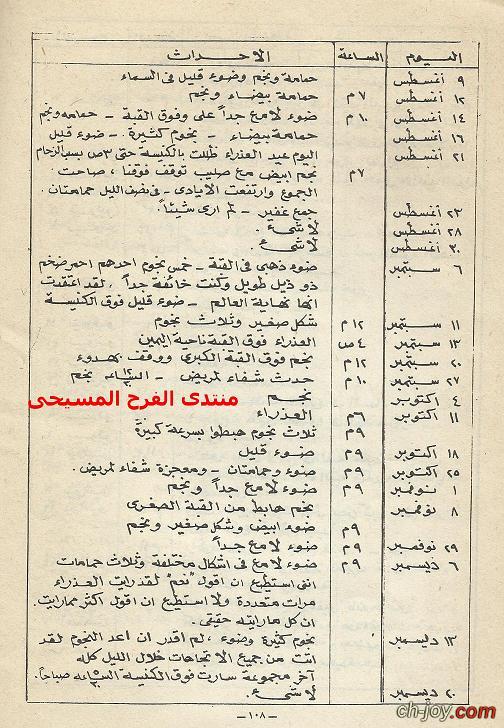 اليوم الساعة الأحداث
٩ أغسطس حمامة ونجم وضوء قليل فى السماء
١٢ أغسطس ٧م حمامة بيضاء ونجم
١٤ أغسطس ١٠م ضوء لامع جداً على وفوق القبة - حمامه ونجم
١٦ أغسطس حمامة بيضاء - نجوم كثيرة. - ضوء قليل
٢١ أغسطس اليوم عيد العذراء ظللت بالكنيسة حتى ٣ص بسبب الزحام
٧م نجم ابيض مع صليب توقف فوقنا، صاحت
الجموع وارتفعت الايادى - فى نصف الليل حمامتان.
٢٣ أغسطس جمع غفير - لم ارى شيئاً.
٢٨ أغسطس لاشىء.
٣٠ أغسطس لاشىء.
٦ سبتمبر ضوء ذهبى فى القبة - خمس نجوم احدهم احمر ضخم
ذو ذيل طويل وكنت خائفة جداً، لقد اعتقدت
انها نهاية العالم - ضوء قليل فوق الكنيسة
١١ سبتمبر ١٢م شكل صغير وثلاث نجوم
١٣ سبتمبر ٤ص العذراء فوق القبة ناحية اليمين
٢٠ سبتمبر ١٢م نجم فوق القبة الكبرى ووقف بهدوء
٢٧ سبتمبر ١٠م حدث شفاء لمريض - نجم
٤ أكتوبر نجم
منتدى الفرح المسيحى
١١ اكتوبر ٦م العذراء
٩م ثلاث نجوم هبطوا بسرعة كبيرة
١٨ اكتوبر ٩م ضوء قليل
٢٥ اكتوبر ٩م ضوء وحمامتان - ومعجزة شفاء لمريض.
١ نوفمبر ٩م ضوء لامع جداً ونجم
٨ نوفمبر نجم هابط من القبة الصغرى
٩م ضوء ابيض وشكل صغير ونجم
٢٩ نوفمبر ٩م ضوء لامع جداً
٦ ديسمبر ٩م ضوء لامع فى اشكال مختلفة وثلاث حمامات
اننى استطيع ان اقول "نعم" لقد رايت العذراء
مرات متعددة ولا استطيع ان اقول اكثر مما رايت.
ان كل مارايته حقيقى.
١٣ ديسمبر نجوم كثيرة وضوء، لم اقدر ان اعد النجوم لقد
اتت من جميع الاتجاهات خلال الليل كله
آخر مجموعة سارت فوق الكنيسة صباحاً.
٢٠ ديسمبر لاشىء.
- ١٠٨ -
ch-joy.com